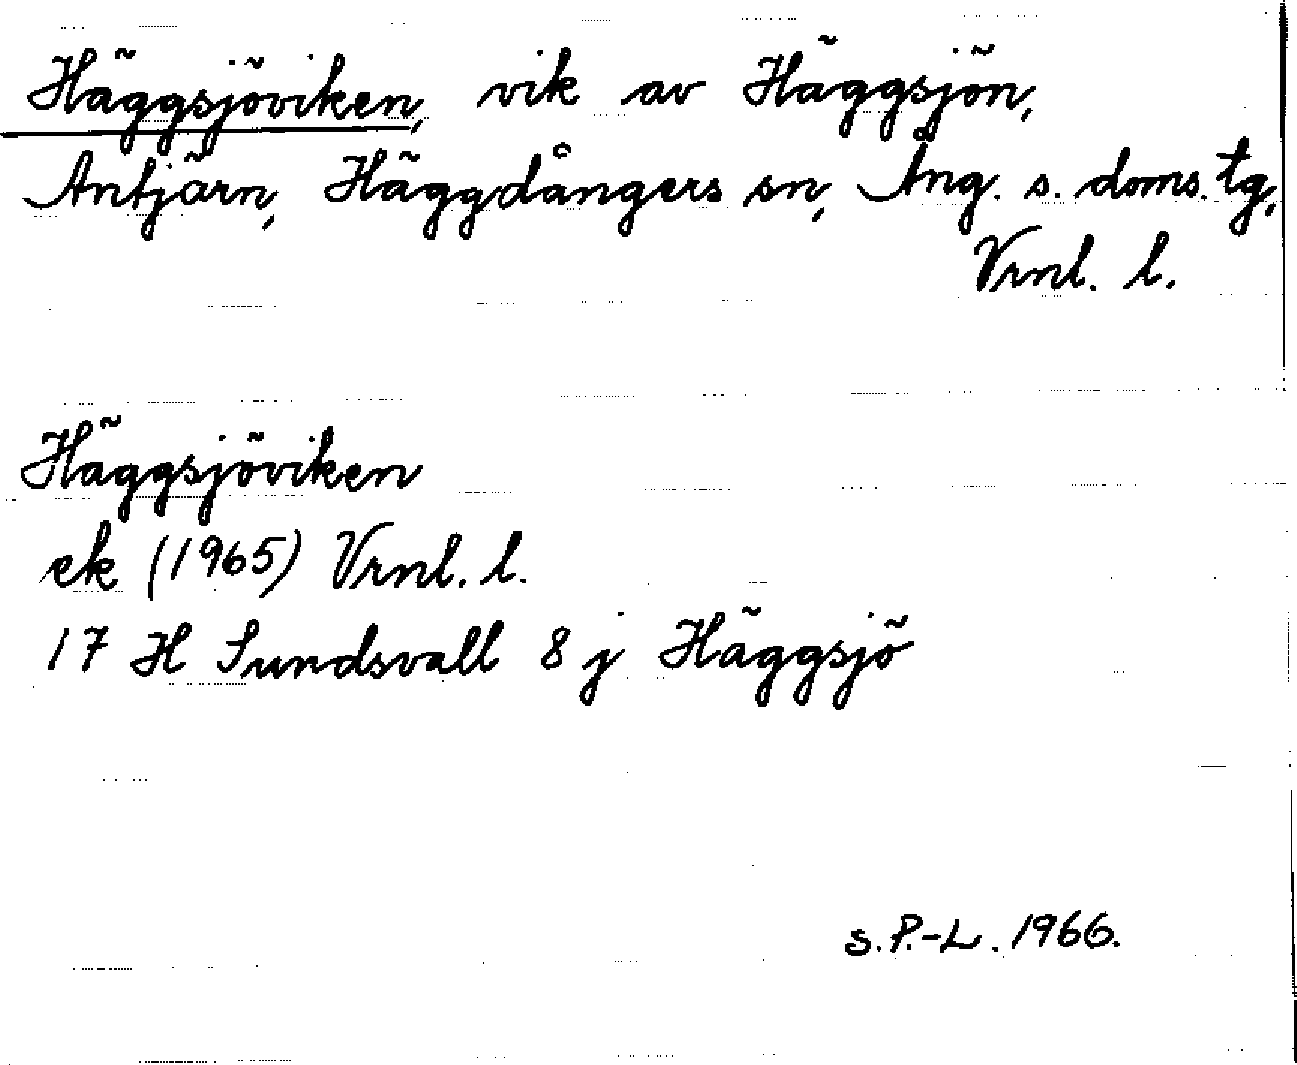 Häggsjöviken, vik av Häggsjön,
Antjärn, Häggdångers sn, Ång. s. doms. tg,
Vrnl. l.
Häggsjöviken
ek (1965) Vrnl. l.
17 H Sundsvall 8 j Häggsjö
s. P.-L. 1966.